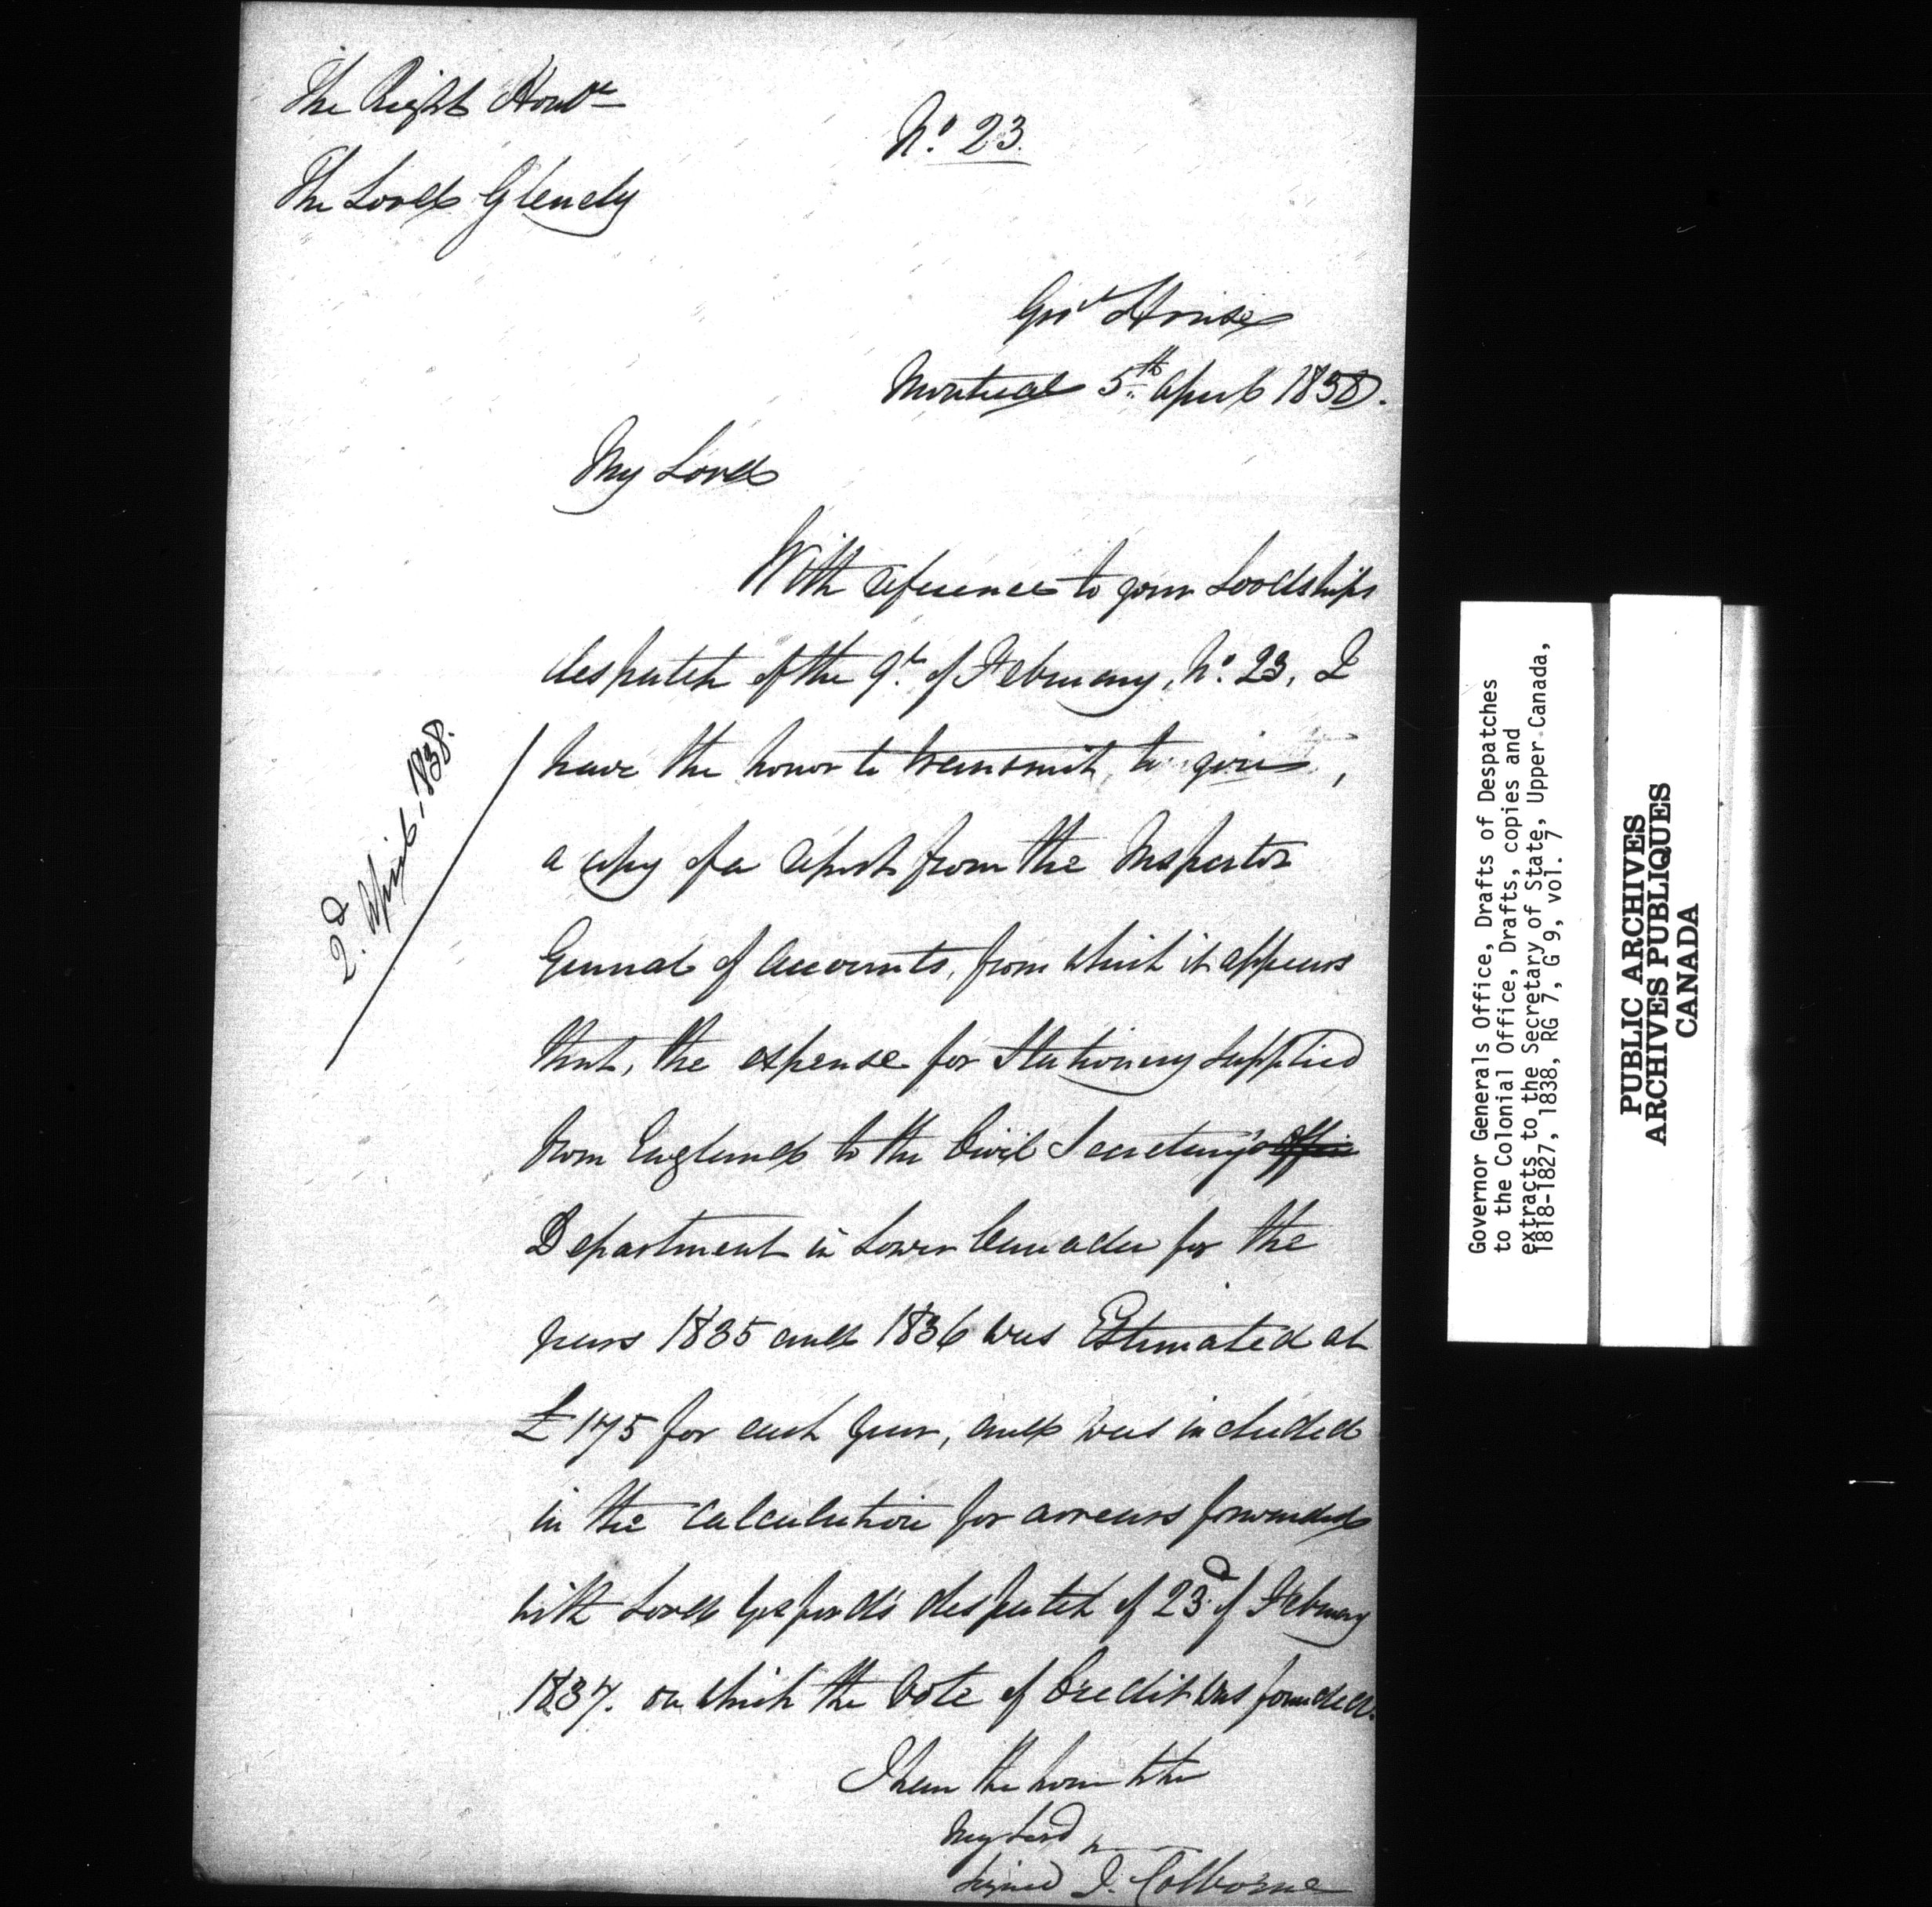 The Right Honble
The Lord Glenelg
No. 23.
Govt House
Montreal 5th April 1838.
My Lord
With reference to your Lordships
despatch of the 9th of February, No. 23, I
have the honor to transmit, to you,
2d. April, 1838.
a copy of a report from the Inspector
General of Accounts, from which it appears
that, the expense for Stationery supplied
from England to the Civil Secretary's office
Department in Lower Canada for the
years 1835 and 1836 was Estimated at
£175 for each year, and was included
in the Calculation for arrears forwarded
with Lord Gosford's despatch of 23d. of February
1837. on which the Vote of Credit was founded.
I have the honor to be
My Lord
Signed J. Colborne
Governor Generals Office, Drafts of Despatches
to the Colonial Office, Drafts, copies and
extracts to the Secretary of State, Upper Canada,
1818-1827, 1838, RG 7, G 9, vol. 7
PUBLIC ARCHIVES
ARCHIVES PUBLIQUES
CANADA